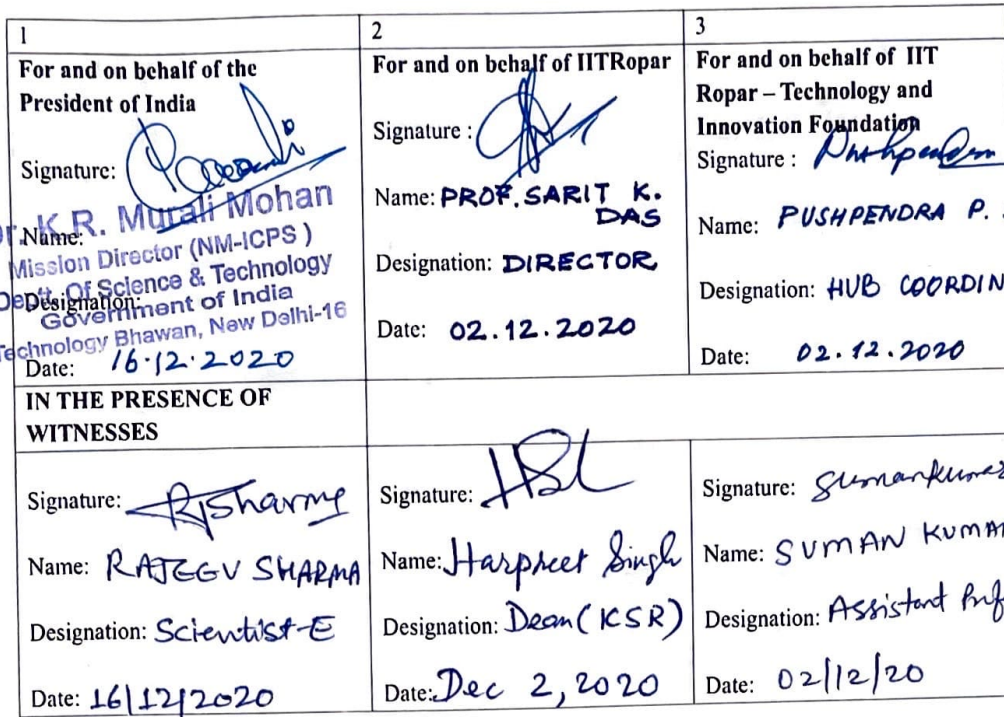 1
For and on behalf of the
President of India
Signature:
Name:
Dr. K.R. Murali Mohan
Mission Director (NM-ICPS)
Designation:
Deptt. Of Science & Technology
Government of India
Technology Bhawan, New Delhi-16
Date: 16.12.2020
2
For and on behalf of IITRopar
Signature :
Name: PROF. SARIT K.
DAS
Designation: DIRECTOR
Date: 02.12.2020
3
For and on behalf of IIT
Ropar – Technology and
Innovation Foundation
Signature :
Name: PUSHPENDRA P.
Designation: HUB COORDIN
Date: 02.12.2020
IN THE PRESENCE OF
WITNESSES
Signature: RjSharma
Name: RAJEEV SHARMA
Designation: Scientist-E
Date: 16/12/2020
Signature:
Name: Harpreet Singh
Designation: Dean (KSR)
Date: Dec 2, 2020
Signature: Sumankumar
Name: SUMAN KUMAR
Designation: Assistant Prof
Date: 02/12/20